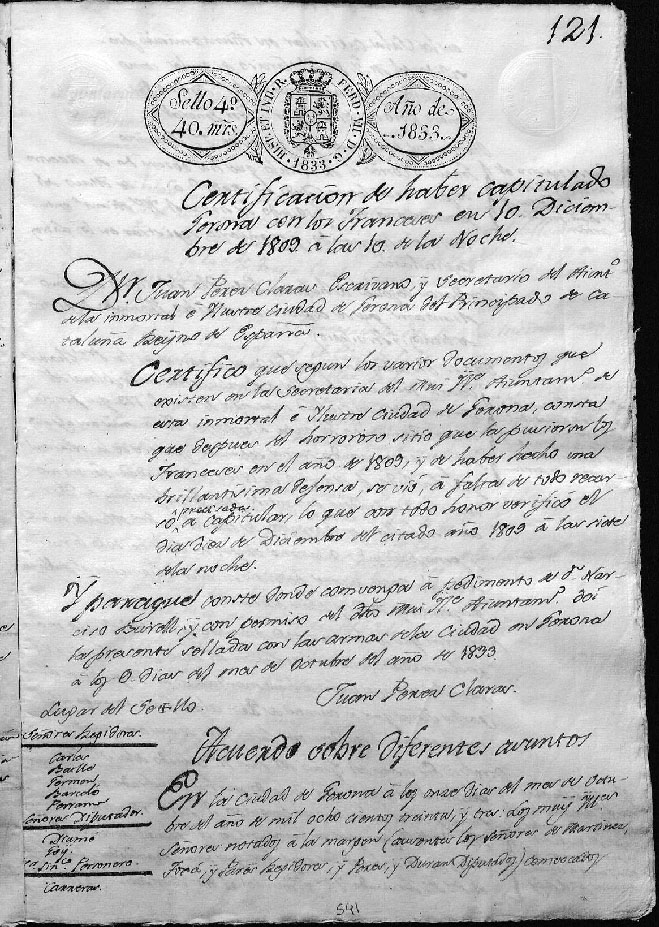 121.
Sello 4º
40. mrs.
HISP. ET IND. R. FERD. VII. D. G. 1833.
Año de
1833.
Certificacion de haber capitulado
Gerona con los Franceses en 10. Diciem-
bre de 1809 à las 10. de la Noche.
Juan Perez Claras Escrivano, y Secretario del Aiuntº
de la inmortal é Ilustre Ciudad de Gerona del Principado de Ca-
taluna Reyno de España.
Certifico que segun los varios documentos que
existen en la Secretaria del Mui Ylle Aiuntamº de
esta inmortal é Ilustre Ciudad de Gerona, consta
que despues del horroroso sitio que la pusieron los
Franceses en el año de 1809, y de haber hecho una
brillantisima defensa, se vió, à falta de todo recur-
so precisada à capitular, lo que con todo honor verificó el
dia diez de Diciembre del citado año 1809 à las siete
de la noche.
Y paraque conste donde convenga à pedimento de Dn Nar-
ciso Burell, y con permiso del dho Mui Ylle Aiuntamº doi
la presente sellada con las armas de la Ciudad en Gerona
à los 9 dias del mes de Octubre del año de 1833.
Juan Perez Claras.
Lugar del Sello.
Señores Regidores.
Carlas
Batlle
Ferrer
Barcelo
Ferramo
Señores Diputados.
Diumé
Foy
Sinco Personero.
Carreras.
Acuerdo sobre diferentes asuntos
En la Ciudad de Gerona à los onze dias del mes de Octu-
bre del año de mil ocho cientos treinta, y tres: Los muy Ylles
Señores notados à la margen (ausentes los Señores de Martinez,
Foxá, y Pares Regidores, y Perez, y Duran Diputados) convocados
541